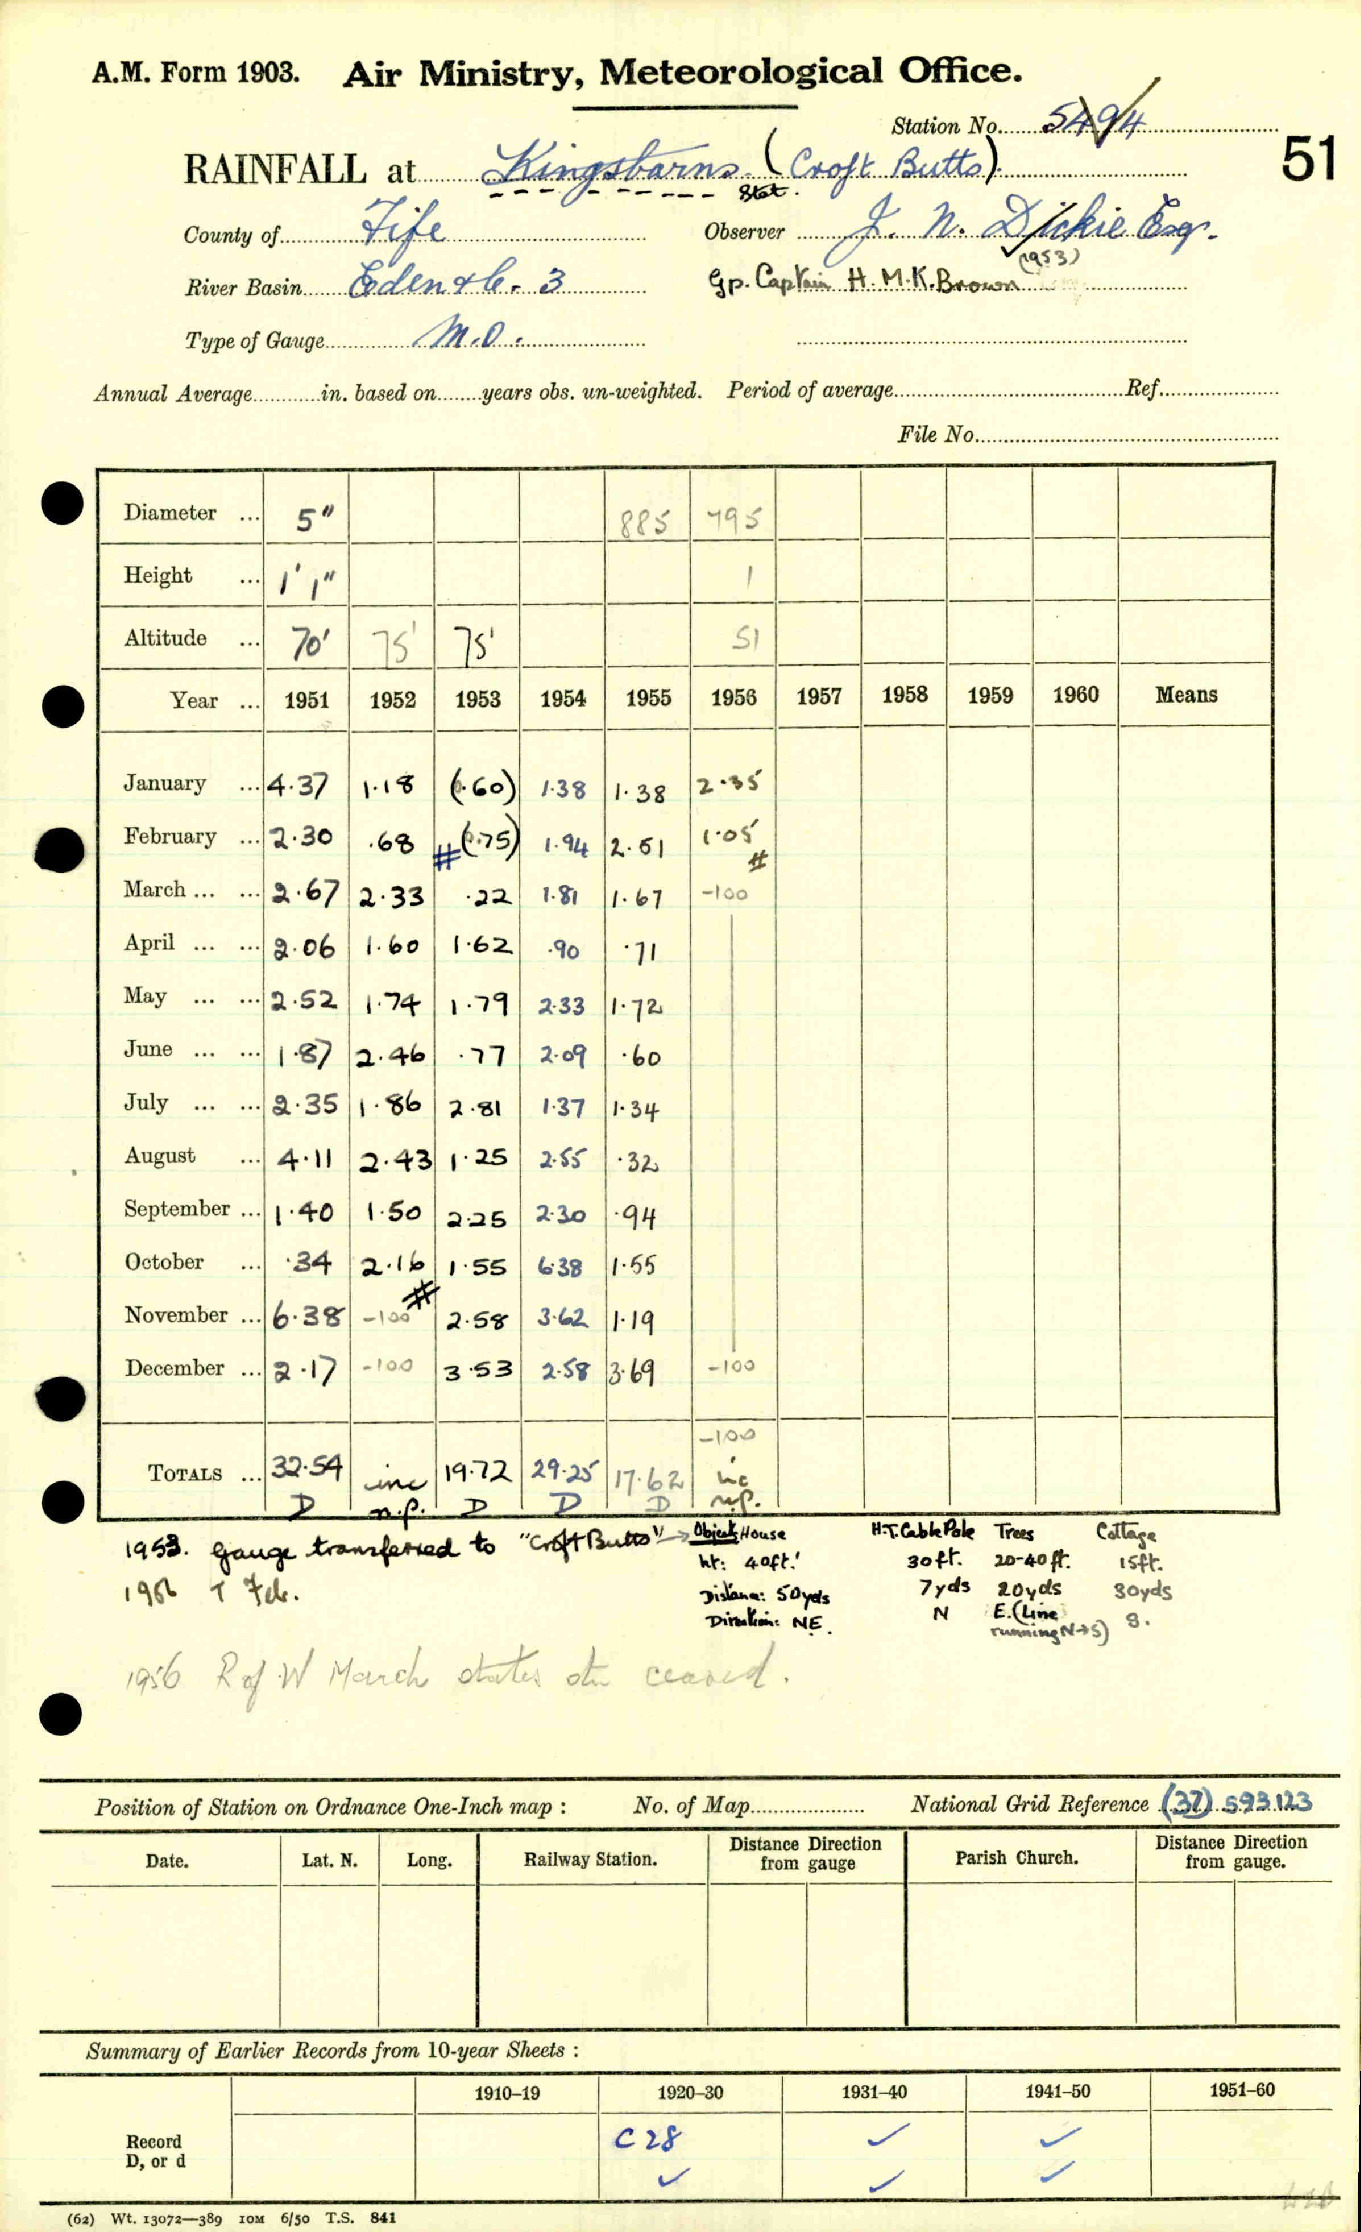 A.M. Form 1903. Air Ministry, Meteorological Office.
Station No. 5494
51
RAINFALL at Kingsbarns. (Croft Butts).
Stat.
County of Fife
Observer J. N. Dickie Esq.
(1953)
River Basin Eden & C. 3
Gp. Captain H.M.K. Brown
Type of Gauge M.O.
Annual Average in. based on years obs. un-weighted. Period of average Ref.
File No.
Diameter ... 5" 885 795
Height ... 1' 1" 1
Altitude ... 70' 75' 75' 51
Year ... 1951 1952 1953 1954 1955 1956 1957 1958 1959 1960 Means
January ... 4.37 1.18 (.60) 1.38 1.38 2.35
February ... 2.30 .68 # (.75) 1.94 2.51 1.05 #
March ... ... 2.67 2.33 .22 1.81 1.67 -100
April ... ... 2.06 1.60 1.62 .90 .71
May ... ... 2.52 1.74 1.79 2.33 1.72
June ... ... 1.87 2.46 .77 2.09 .60
July ... ... 2.35 1.86 2.81 1.37 1.34
August ... 4.11 2.43 1.25 2.55 .32
September ... 1.40 1.50 2.25 2.30 .94
October ... .34 2.16 1.55 6.38 1.55
November ... 6.38 -100 # 2.58 3.62 1.19
December ... 2.17 -100 3.53 2.58 3.69 -100
-100
TOTALS ... 32.54 inc 19.72 29.25 17.62 inc
D n.p. D D D n.p.
1953. Gauge transferred to "Croft Butts" → Object: House H.T. Cable Pole Trees Cottage
ht: 40ft. 30ft. 20-40ft. 15ft.
1956 T Feb.
Distance: 50yds 7yds 20yds 30yds
Direction: NE. N E. (Line running N→S) S.
1956 R of W March states stn ceased.
Position of Station on Ordnance One-Inch map : No. of Map National Grid Reference (37) 593123
Date. Lat. N. Long. Railway Station. Distance Direction from gauge Parish Church. Distance Direction from gauge.
Summary of Earlier Records from 10-year Sheets :
1910–19 1920–30 1931–40 1941–50 1951–60
Record C28 ✓ ✓
D, or d ✓ ✓ ✓
(62) Wt. 13072—389 10M 6/50 T.S. 841